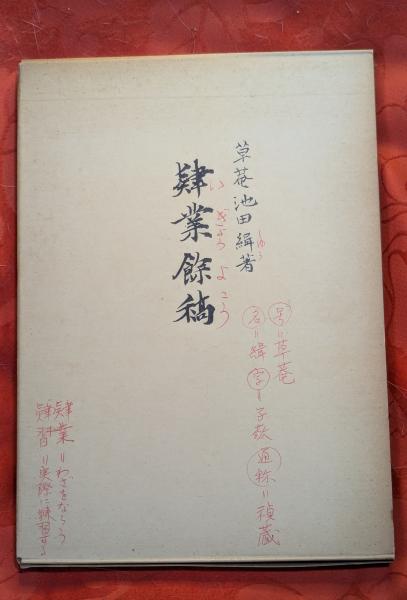 草菴池田緝著
しゅう
肄業餘稿
いぎょうよこう
号=草菴
名=緝 字=子敬 通称=禎蔵
肄業=わざをならう
肄習=実際に練習する